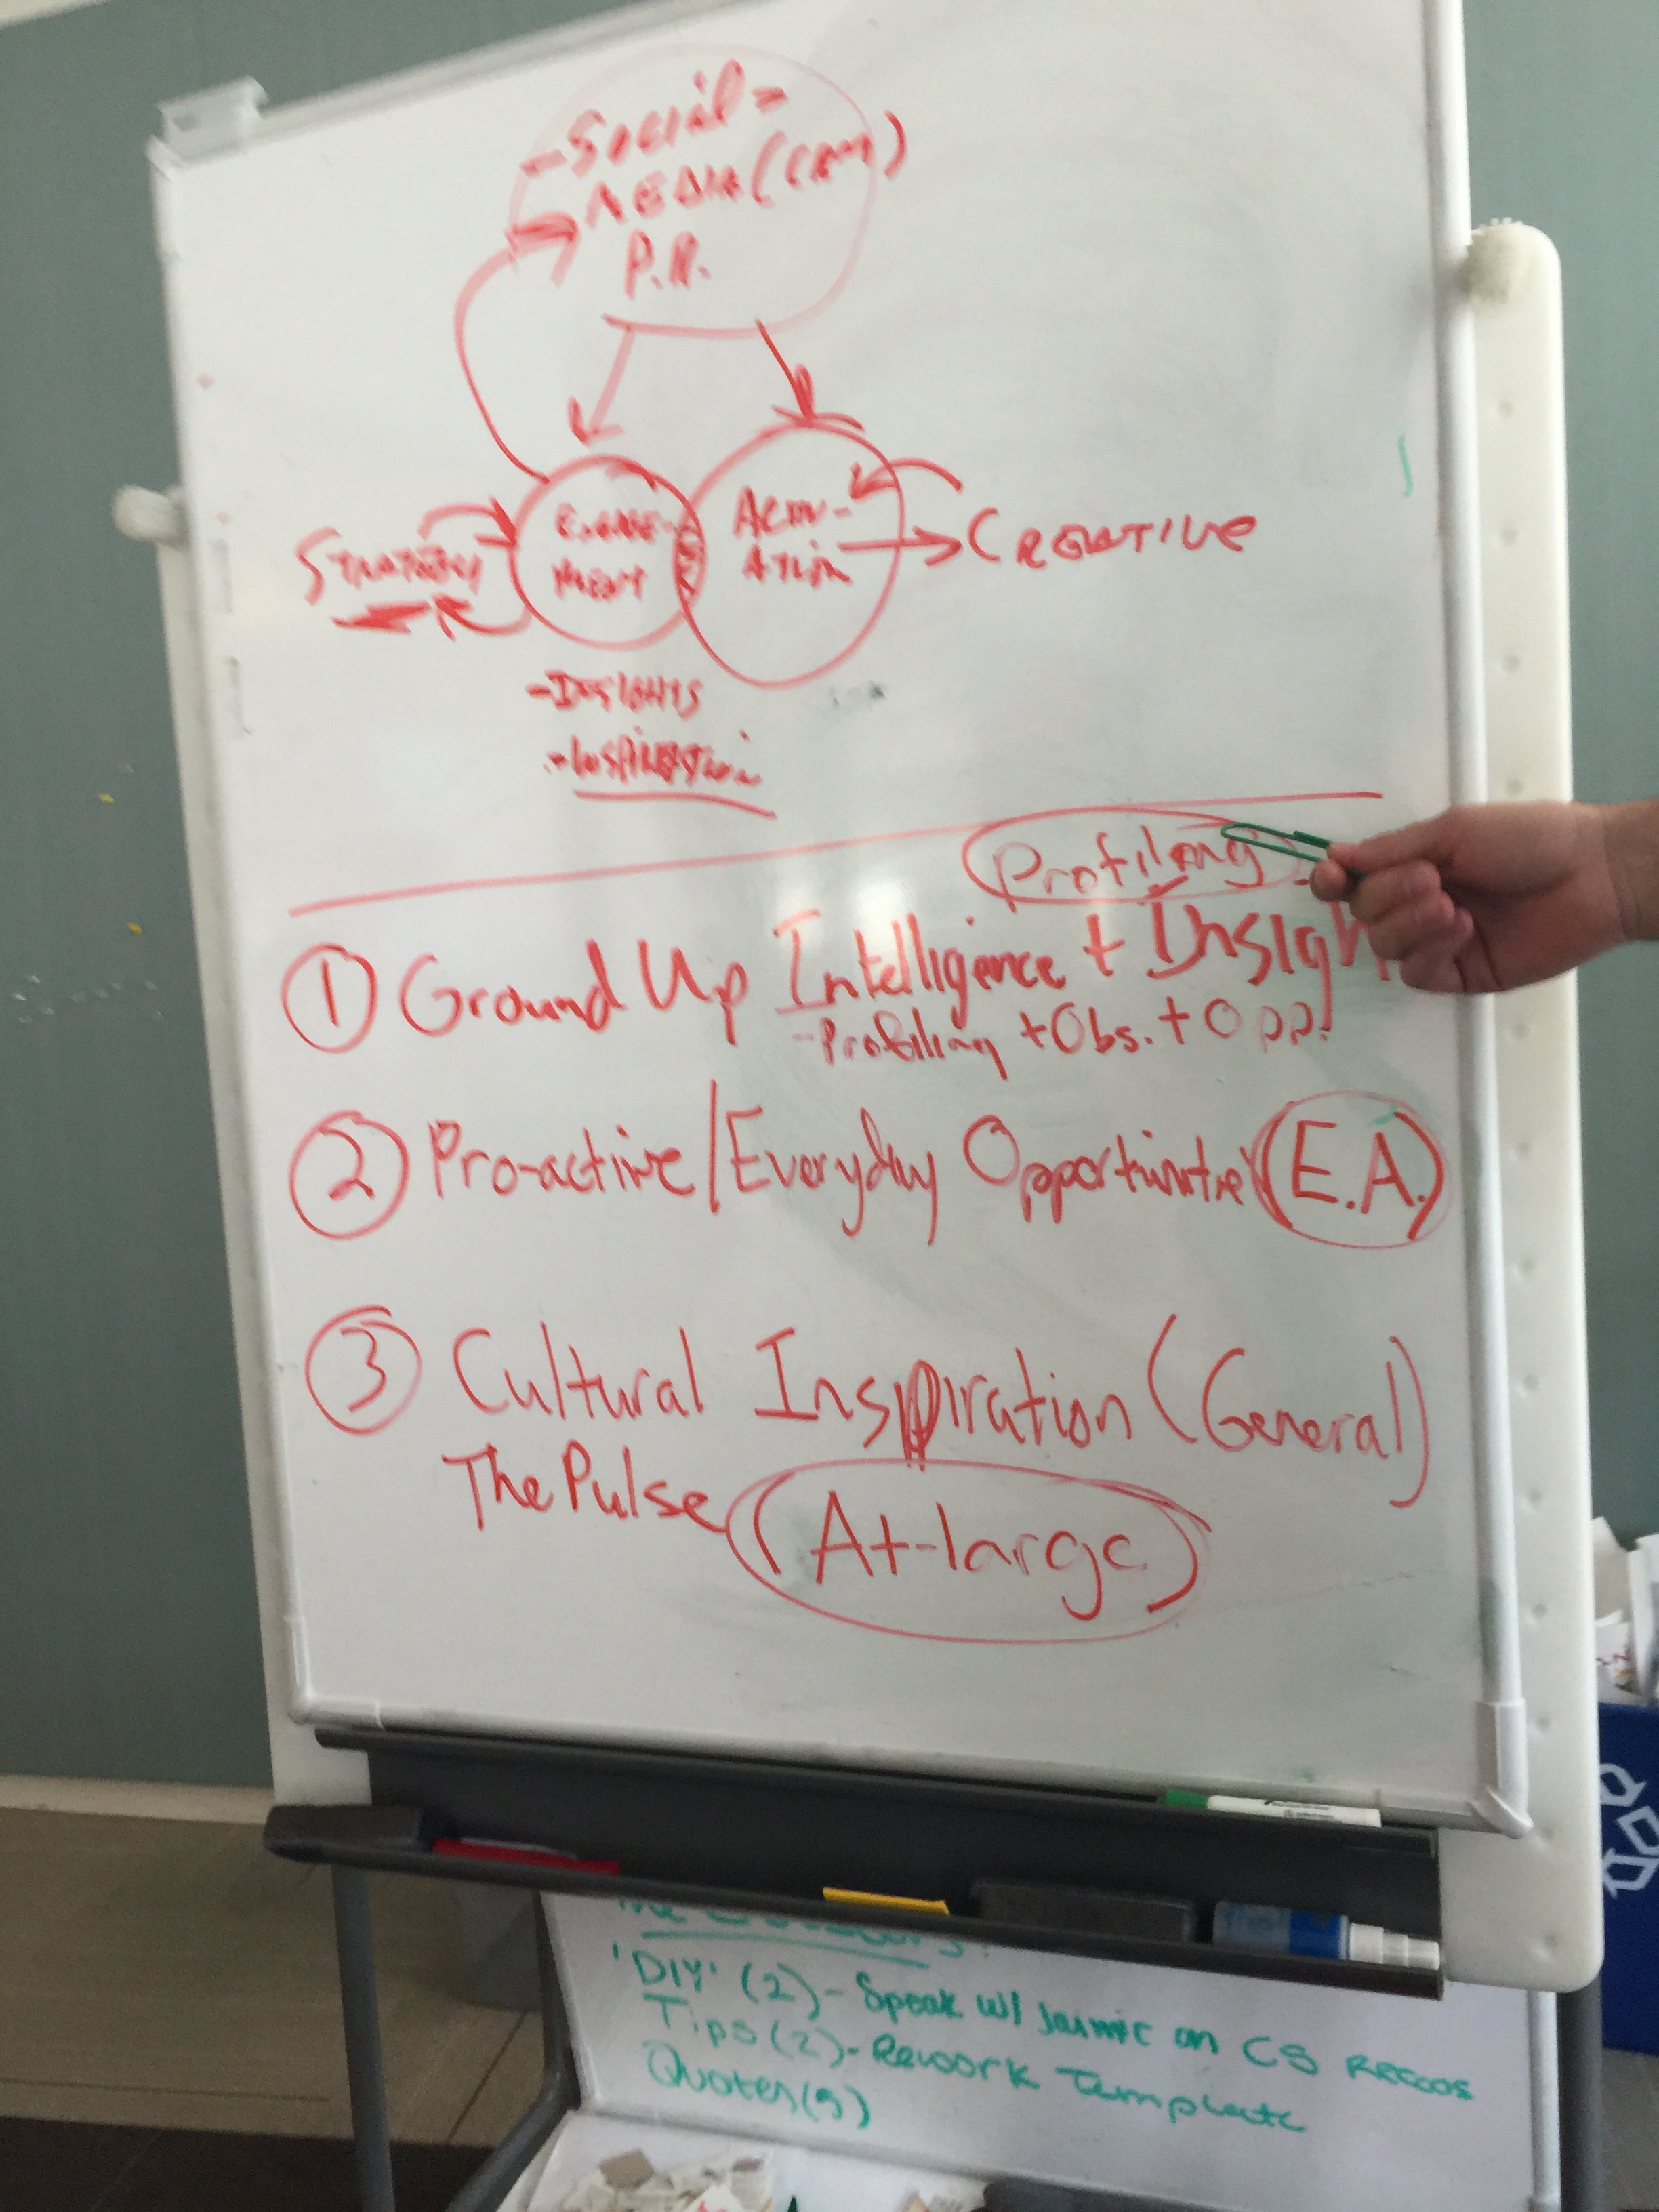 - Social -
MEDIA (CRM)
P.R.
STRATEGY
ENGAGE-
MENT
ACTIV-
ATION
CREATIVE
- INSIGHTS
- INSPIRATION
Profiling
1 Ground Up Intelligence + Insigh
- Profiling + Obs. + Opp.
2 Pro-active/Everyday Opportunitie (E.A.)
3 Cultural Inspiration (General)
The Pulse (At-large)
'DIY' (2) - Speak w/ on CS Recos
Tips (2) - Rework Template
Quotes (5)